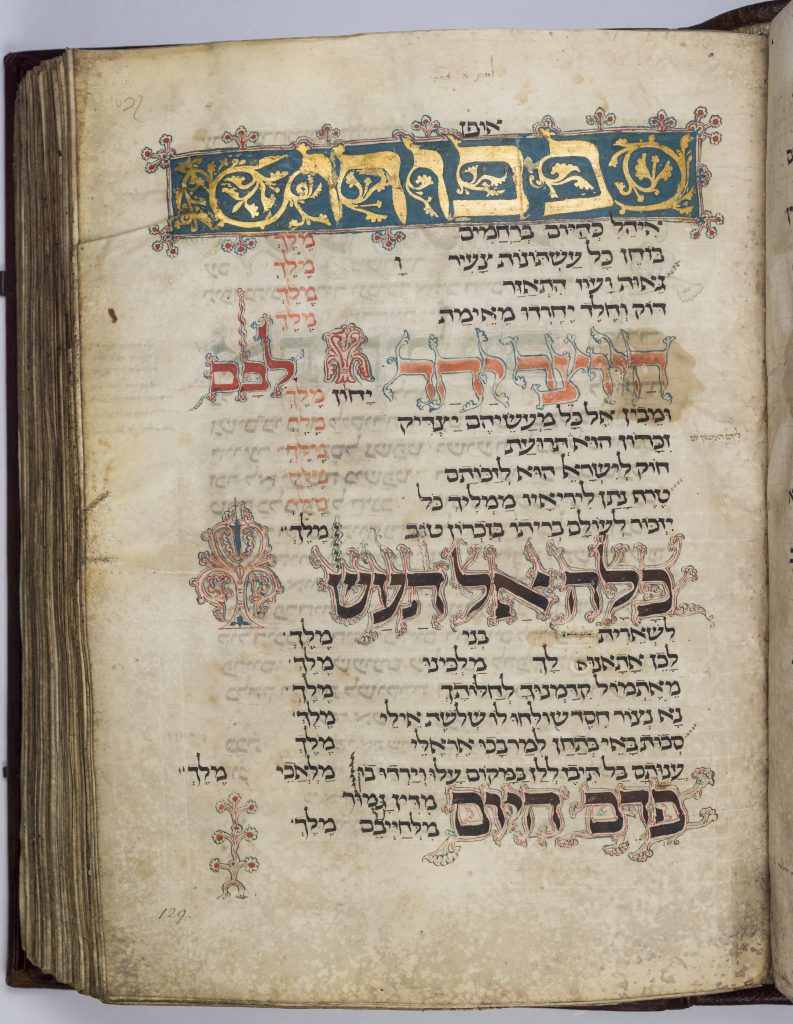 אופן
כבודו
איהל כהיום ברחמים מלך
בוחן כל עשתונות צעיר ו מלך
גאות ועוז התאזר מלך
דוק וחלד יחרדו מאימת מלך
היוצר יחד לבם
יחון מלך
ומבין אל כל מעשיהם יצדיק מלך
זכרון הוא תרועת מלך
חוק לישראל הוא לזכותם מלך
טרף נתן ליריאיו ממליך כל מלך
יזכור לעולם בריתו בזכרון טוב מלך
כלה אל תעש
לשארית בני מלך
לכן אתאנו לך מלכינו מלך
מאתמול קדמנוך לחלותך מלך
נא נצור חסד שולחו לו שלשת אילי מלך
סכות באי בתחן למרבכו אראלי מלך
ענותם כל תיבו ללן במקום עלו וירדו בו מלאכי מלך
פדם היום מדין גמור
מלחייבם מלך
129.